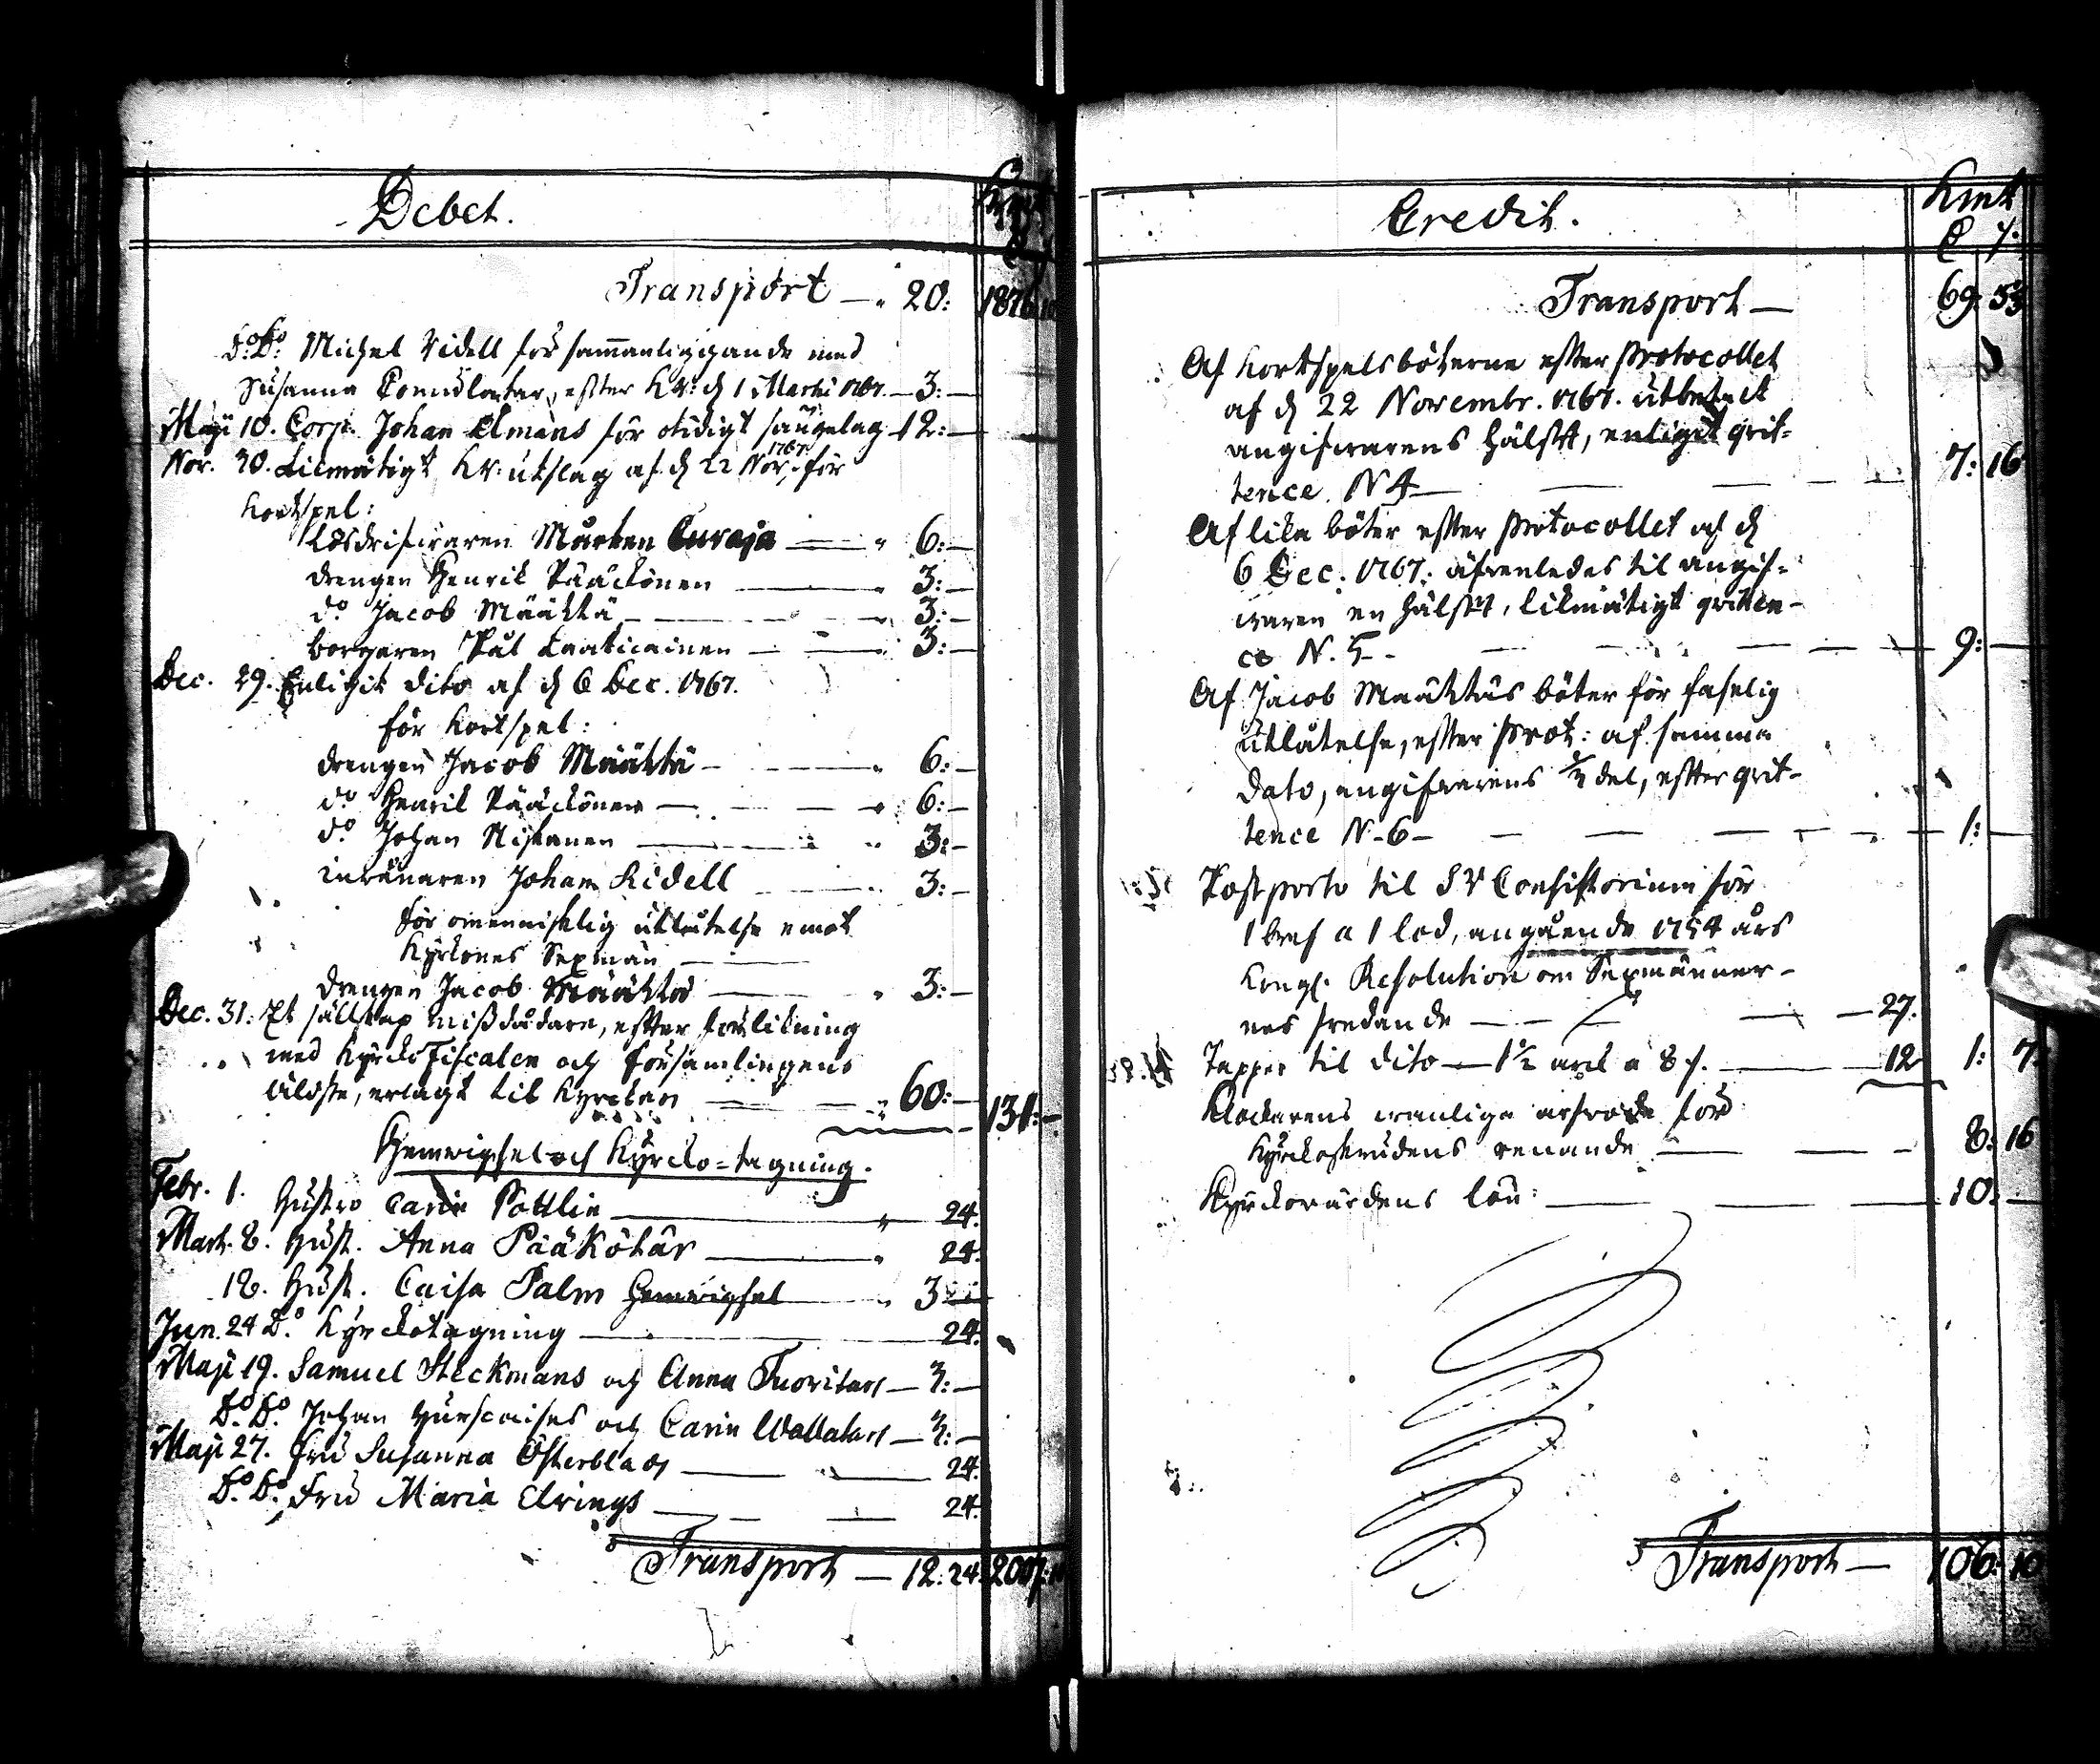 Debet.
Transport — 20: 1876
D:o D:o Michel Ridell för sammanliggande med
Susanna , efter KR: d 1 Martii 1767. — 3: —
Maji 10. Corp. Johan Elmans för otidigt sängelag 12: —
Nov. 30. Likmätigt KR: utslag af d 22 Nov. 1767 för
kortspel:
Lösdrifvaren Mårten Curaja — 6: —
drengen Henrik Pääckönen — 3: —
d:o Jacob Määttä — 3: —
borgaren Pål Laaticainen — 3: —
Dec. 29. Enligit dito af d 6 Dec. 1767.
för kortspel:
drengen Jacob Määttä — 6: —
d:o Henrik Pääckönen — 6: —
d:o Johan Niskanen — 3: —
Johan Lidell — 3: —
för omenniskelig utlåtelse emot
Kyrkones Sexmän —
drengen Jacob Määttä — 3: —
Dec. 31: Et sällskap missdådare, efter förlikning
med KyrckoFiscalen och församlingens
äldste, erlagt til Kyrckan — 60: — 131: —
Hemvigsel och Kyrcko-tagning.
Febr. 1. Hustro Carin Pottlin — 24.
Mart. 8. Hust. Anna Pääkötär — 24.
18. Hust. Caisa Palm Hemvigsel — 3: —
Jun. 24 D:o Kyrckotagning — 24.
Maji 19. Samuel Steckmans och Anna Tuoritars — 3: —
D:o D:o Johan och Carin Wallatars — 3: —
Maji 27. Fru Susanna Österblads — 24.
D:o D:o Fru Maria Elvings — 24.
Transport — 12: 24. 2007:
Credit.
Kmt
Transport — 69: 5 1/3
Af kortspelsböterne efter Protocollet
af d 22 Novembr. 1767. utbetalt
angifvarens hälft, enligit qvit-
tence. N 4 — 7: 16
Af lika böter efter Protocollet af d
6 Dec. 1767. äfvenledes til angif-
varen en hälft, likmätigt qvitten-
ce N. 5 — 9: —
Af Jacob Määttäs böter för faselig
utlåtelse, efter Prot: af samma
dato, angifvarens 1/3 del, efter qvit-
tence N. 6 — 1: —
Postporto til S V Consistorium för
1 bref a 1 lod, angående 1754 års
Kongl. Resolution om Sexmänner-
nes fredande — 27.
Papper til dito — 1 1/2 ark a 8 /. — 12 1: 7.
Klockarens vanliga arfvode för
Kyrckoskrudens renande — 8: 16
Kyrckovärdens lön: — 10: —
Transport — 106: 10